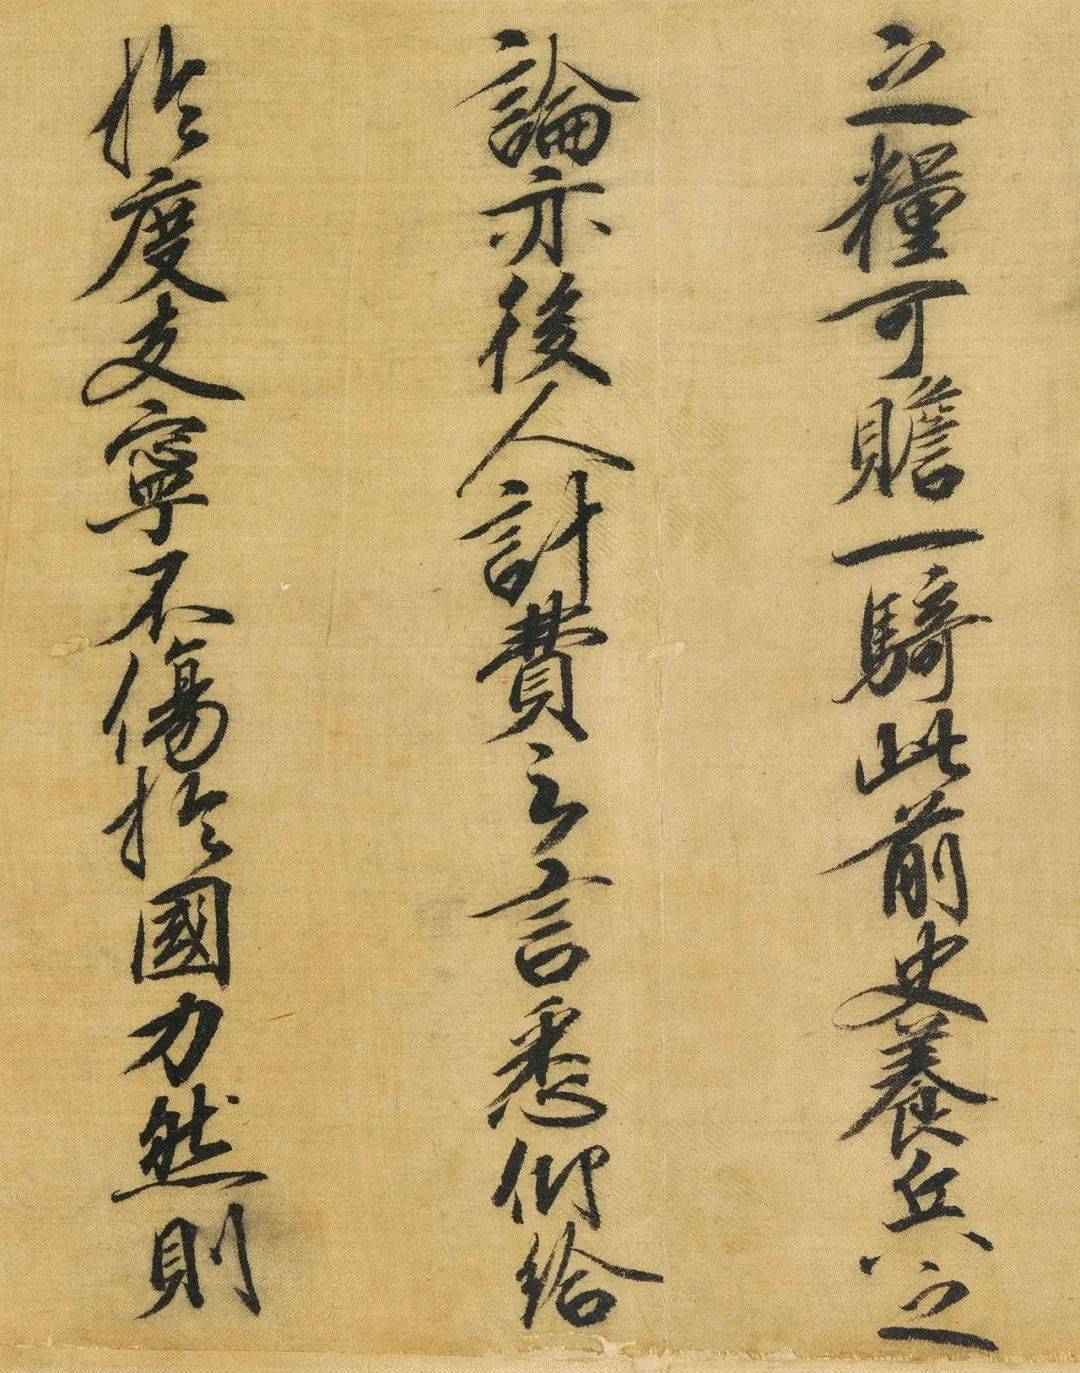 之糧可贍一騎此前史養兵之
論亦後人計費之言悉仰給
於度支寧不傷於國力然則